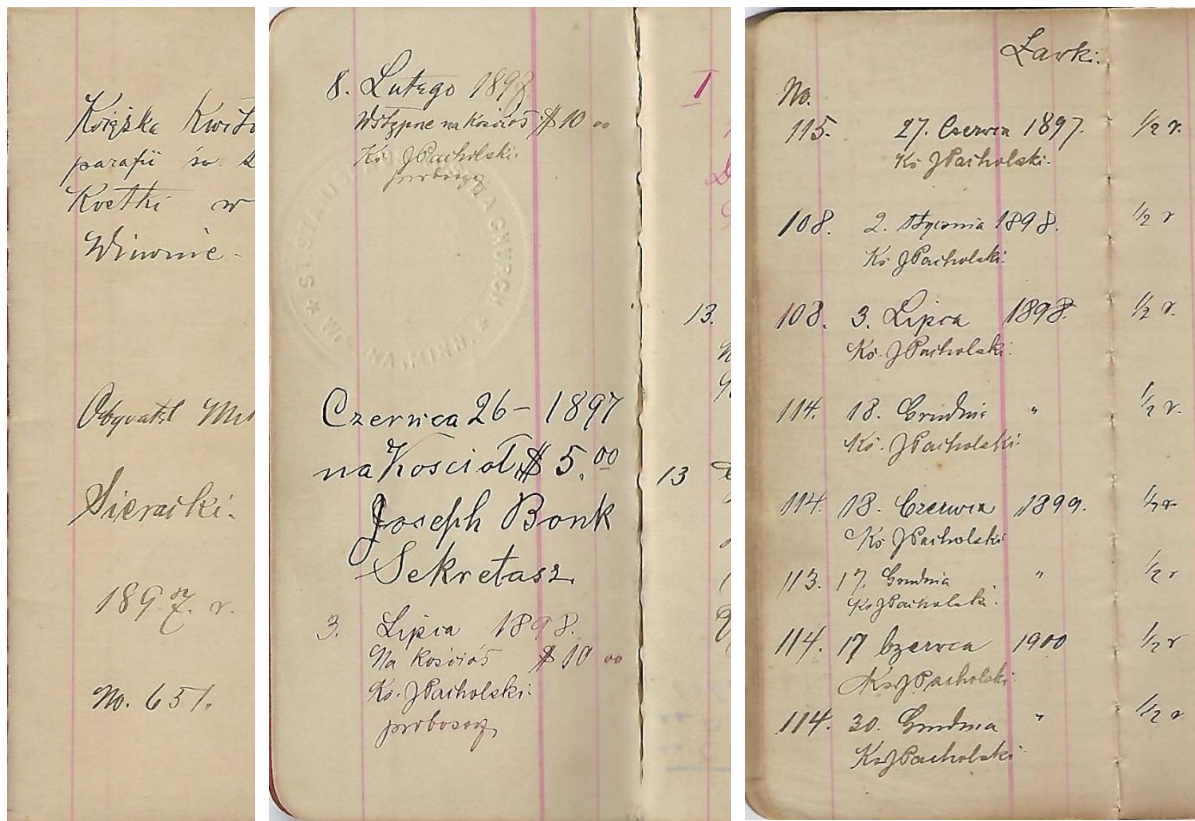 Książka Kwito
parafii św. S
Kostki w
Winonie.
Obywatel
Sieracki.
1897. r.
No. 651.
8. Lutego 1897
Wstępne na Kościoł $10 00
Ks. J Pacholski.
proboszcz
ST. STANISLAUS KOSTKA CHURCH
WINONA, MINN.
Czerwca 26 - 1897
na Kościoł $ 5.00
Joseph Bonk
Sekretasz
3. Lipca 1898.
Na Kościoł $10 00
Ks. J Pacholski.
proboszcz
I
13.
13
Ławki.
No.
115. 27. Czerwca 1897. 1/2 r
Ks J Pacholski.
108. 2. Stycznia 1898. 1/2 r
Ks J Pacholski.
108. 3. Lipca 1898. 1/2 r.
Ks. J Pacholski.
114. 18. Grudnia " 1/2 r.
Ks. J Pacholski.
114. 18. Czerwca 1899. 1/2 r
Ks J Pacholski
113. 17. Grudnia " 1/2 r
Ks J Pacholski.
114. 17 Czerwca 1900 1/2 r
Ks. J Pacholski
114. 30. Grudnia " 1/2 r
Ks J Pacholski